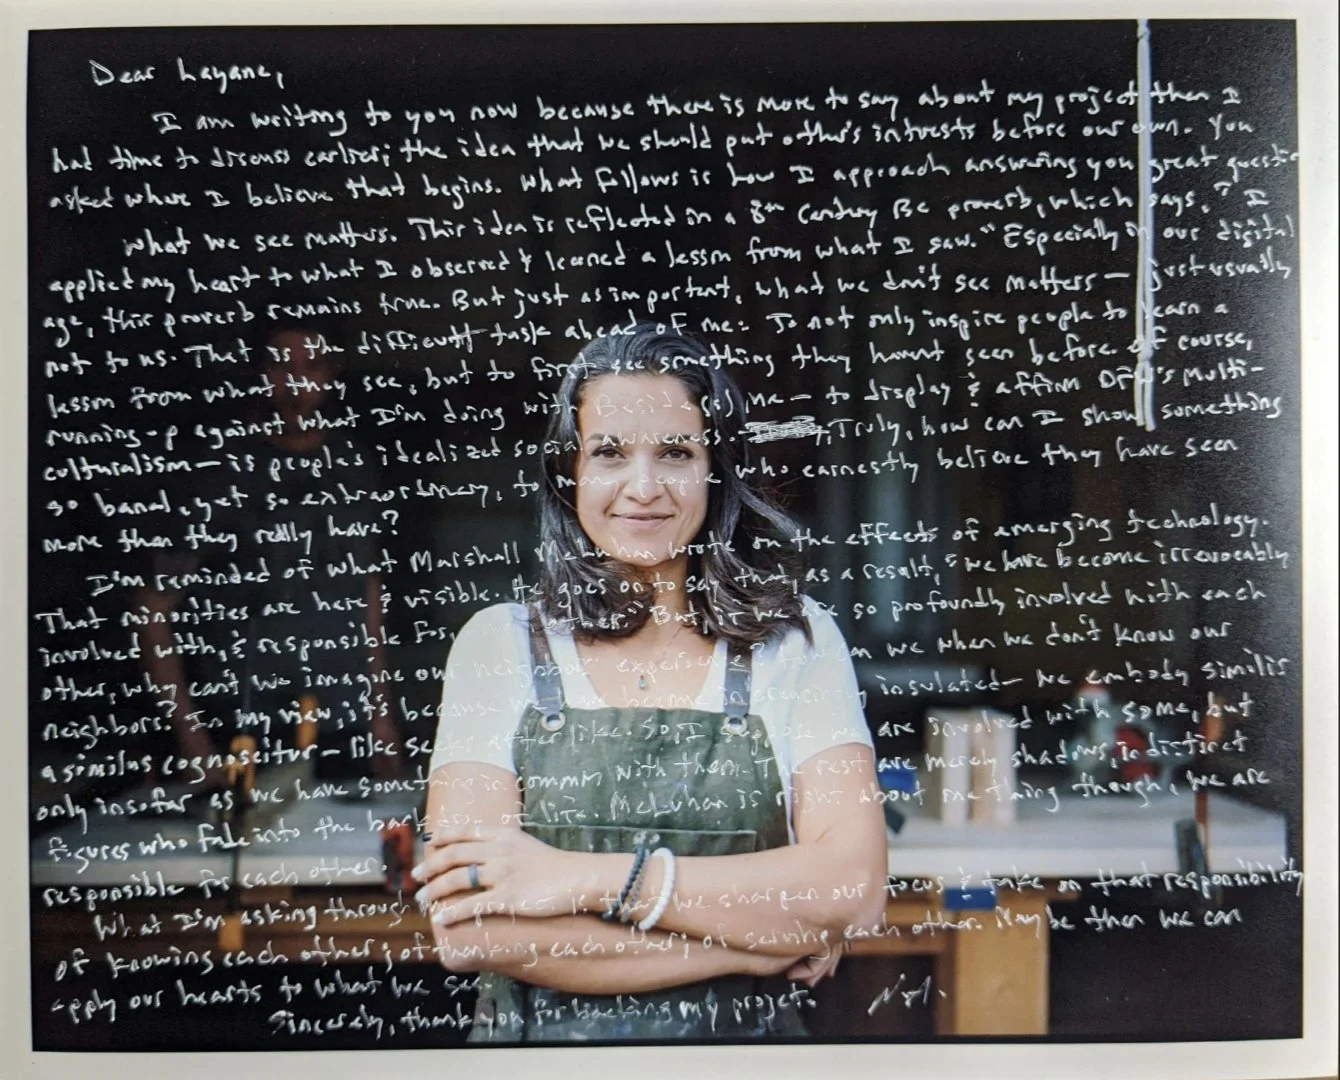 Dear Layane,
I am writing to you now because there is more to say about my project then I
had time to discuss earlier; the idea that we should put other's intrests before our own. You
asked where I believe that begins. What follows is how I approach answering you great questi
What we see matters. This idea is reflected in a 8th Century BC proverb, which says, "I
applied my heart to what I observed & learned a lesson from what I saw." Especially in our digital
age, this proverb remains true. But just as important, what we don't see matters — just usually
not to us. That is the difficult task ahead of me: To not only inspire people to learn a
lesson from what they see, but to first see something they havent seen before. Of course,
running-p against what I'm doing with Beside(s) Me — to display & affirm DFW's multi-
culturalism — is people's idealized social awareness. Truly, how can I show something
so banal, yet so extraordinary, to many people who earnestly believe they have seen
more than they really have?
I'm reminded of what Marshall McLuhan wrote on the effects of emerging technology.
That minorities are here & visible. He goes on to say that, as a result, "we have become irrevocably
involved with, & responsible for, each other." But, if we are so profoundly involved with each
other, why can't we imagine our neighbors' experience? How can we when we don't know our
neighbors? In my view, it's because we have become increasingly insulated — we embody similis
a similus cognoscitur — like seeks after like. So, I suppose we are involved with some, but
only insofar as we have something in common with them. The rest are merely shadows, indistinct
figures who fade into the backdrop of life. McLuhan is right about one thing though, we are
responsible for each other.
What I'm asking through my project is that we sharpen our focus & take on that responsibility
of knowing each other; of thanking each other; of serving each other. Maybe then we can
apply our hearts to what we see.
Sincerely, thank you for backing my project.